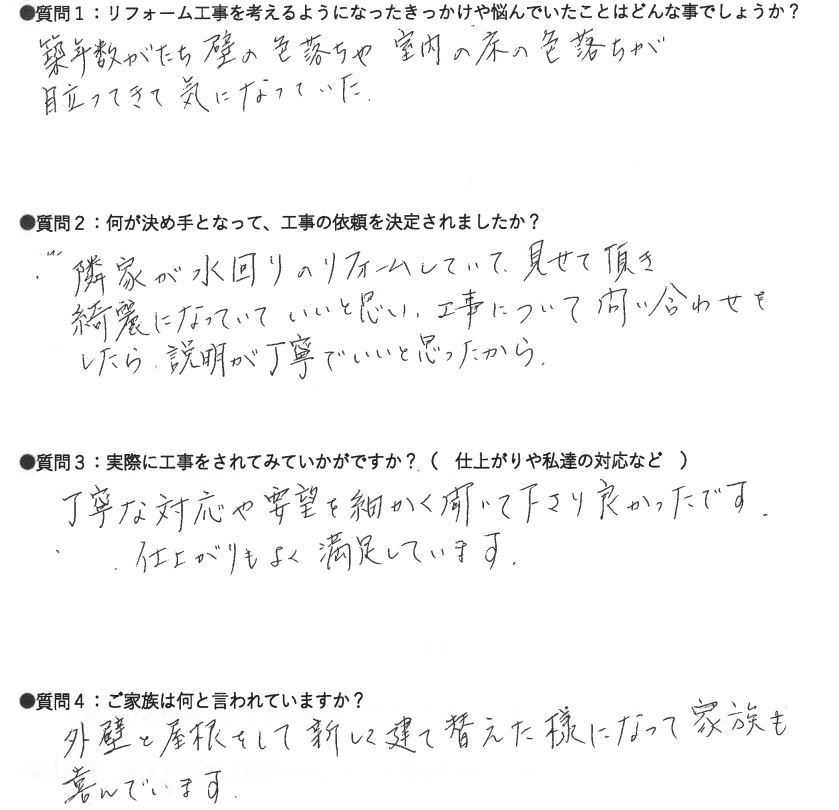 ●質問1：リフォーム工事を考えるようになったきっかけや悩んでいたことはどんな事でしょうか？
築年数がたち壁の色落ちや室内の床の色落ちが
目立ってきて気になっていた.
●質問2：何が決め手となって、工事の依頼を決定されましたか？
隣家が水回りのリフォームしていて、見せて頂き
綺麗になっていていいと思い、工事について問い合わせを
したら、説明が丁寧でいいと思ったから.
●質問3：実際に工事をされてみていかがですか？（　仕上がりや私達の対応など　）
丁寧な対応や要望を細かく聞いて下さり良かったです.
仕上がりもよく満足しています.
●質問4：ご家族は何と言われていますか？
外壁と屋根をして新しく建て替えた様になって家族も
喜んでいます.